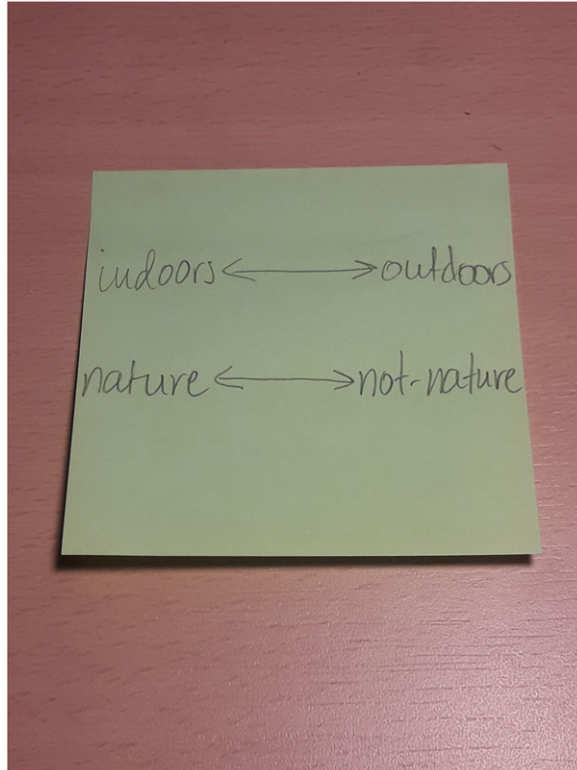 indoors ↔ outdoors
nature ↔ not-nature